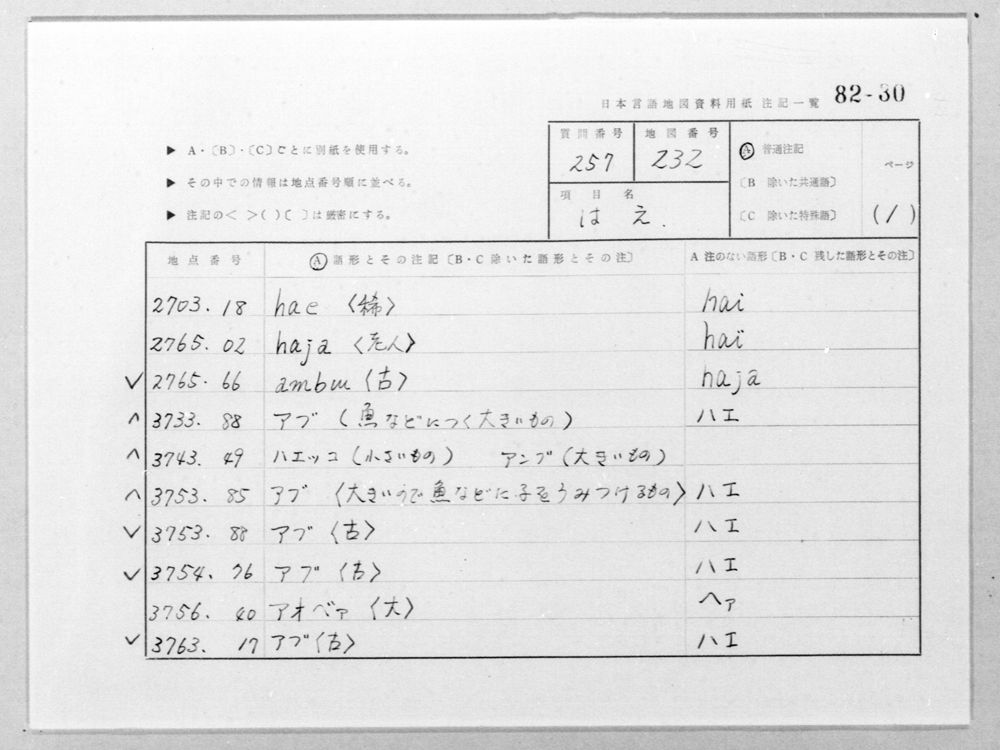 日本言語地図資料用紙 注記一覧 82-30
▶ A・〔B〕・〔C〕ごとに別紙を使用する。
▶ その中での情報は地点番号順に並べる。
▶ 注記の< >( )〔 〕は厳密にする。
質問番号 257
地図番号 232
項目名 はえ.
Ⓐ 普通注記
〔B 除いた共通語〕
〔C 除いた特殊語〕
ページ (1)
地点番号 Ⓐ 語形とその注記〔B・C 除いた語形とその注〕 A 注のない語形〔B・C 残した語形とその注〕
2703. 18 hae 〈稀〉 hai
2765. 02 haja 〈老人〉 haï
∨ 2765. 66 ambɯ 〈古〉 haja
∧ 3733. 88 アブ (魚などにつく大きいもの) ハエ
∧ 3743. 49 ハエッコ (小さいもの) アンブ (大きいもの)
∧ 3753. 85 アブ 〈大きいので魚などに子をうみつけるもの〉 ハエ
∨ 3753. 88 アブ 〈古〉 ハエ
∨ 3754. 76 アブ 〈古〉 ハエ
3756. 40 アオベァ 〈大〉 ヘァ
∨ 3763. 17 アブ〈古〉 ハエ